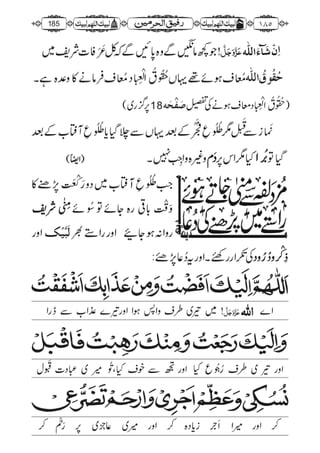 185 لبیک اللھم لبیک رفیق الحرمین لبیک اللھم لبیک ١٨٥
اِنْ شَآءَ اللہ عَزَّوَجَلَّ! جو کچھ مانگیں گے وہ پائیں گے بلکہ کل عَرَفات شریف میں
حُقُوقُ اللہ معاف ہوئے تھے یہاں حُقُوقُ الْعِباد مُعاف فرمانے کا وعدہ ہے۔
(حُقُوقُ العباد معاف ہونے کی تفصیل صَفْحَہ 18 پر گزری)
نمازِ فجر سے قَبْل مگر طُلُوعِ فَجْر کے بعد یہاں سے چلا گیا یا طُلُوعِ آفتاب کے بعد
گیا تو بُرا کیا مگر اس پر دَم وغیرہ واجِب نہیں۔ (ایضاً)
مُزْدَلِفہ سے مِنٰی جاتے ہوئے راستے میں پڑھنے کی دُعا
جب طُلُوعِ آفتاب میں دو رَکْعَت پڑھنے کا
وَقْت باقی رہ جائے تو سُوئے مِنٰی شریف
روانہ ہو جائیے اور راستے بھر لَبَّیْک اور
ذِکْر و دُرُود کی تکرار رکھئے۔ اور یہ دُعا پڑھئے:
اَللّٰھُمَّ اِلَیْکَ اَفَضْتُ وَمِنْ عَذَابِکَ اَشْفَقْتُ
اے اللہ عَزَّوَجَلَّ! میں تیری طرف واپس ہوا اور تیرے عذاب سے ڈرا
وَاِلَیْکَ رَجَعْتُ وَمِنْکَ رَھِبْتُ فَاقْبَلْ
اور تیری طرف رُجُوع کیا اور تجھ سے خوف کیا، تُو میری عبادت قبول
نُسُکِیْ وَعَظِّمْ اَجْرِیْ وَارْحَمْ تَضَرُّعِیْ
کر اور میرا اَجْر زیادہ کر اور میری عاجزی پر رَحْم کر